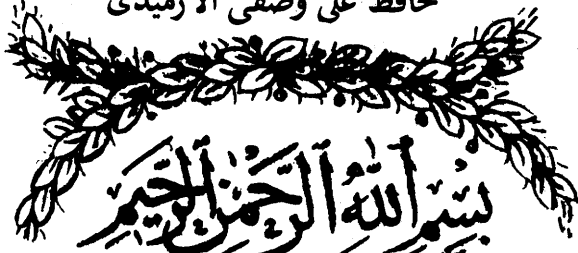 حافظ على وصفى الارميدى
بسم الله الرحمن الرحيم